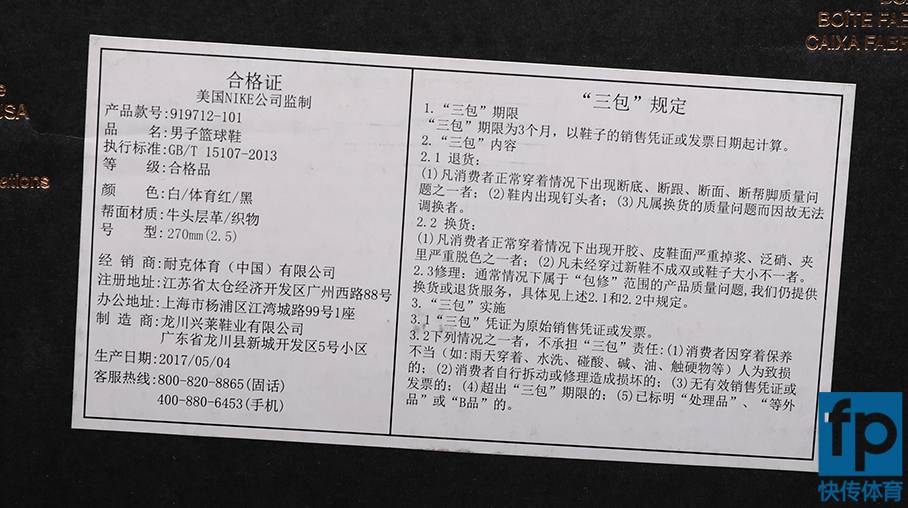 BOÎTE FAB
CAIXA FABR
USA
ations
合格证
美国NIKE公司监制
产品款号:919712-101
品 名:男子篮球鞋
执行标准:GB/T 15107-2013
等 级:合格品
颜 色:白/体育红/黑
帮面材质:牛头层革/织物
号 型:270mm(2.5)
经 销 商:耐克体育（中国）有限公司
注册地址:江苏省太仓经济开发区广州西路88号
办公地址:上海市杨浦区江湾城路99号1座
制 造 商:龙川兴莱鞋业有限公司
广东省龙川县新城开发区5号小区
生产日期:2017/05/04
客服热线:800-820-8865(固话)
400-880-6453(手机)
“三包”规定
1.“三包”期限
“三包”期限为3个月，以鞋子的销售凭证或发票日期起计算。
2.“三包”内容
2.1 退货:
(1)凡消费者正常穿着情况下出现断底、断跟、断面、断帮脚质量问
题之一者；(2)鞋内出现钉头者；(3)凡属换货的质量问题而因故无法
调换者。
2.2 换货:
(1)凡消费者正常穿着情况下出现开胶、皮鞋面严重掉浆、泛硝、夹
里严重脱色之一者；(2)凡未经穿过新鞋不成双或鞋子大小不一者。
2.3修理: 通常情况下属于“包修”范围的产品质量问题,我们仍提供
换货或退货服务，具体见上述2.1和2.2中规定。
3.“三包”实施
3.1“三包”凭证为原始销售凭证或发票。
3.2下列情况之一者，不承担“三包”责任:(1)消费者因穿着保养
不当（如:雨天穿着、水洗、碰酸、碱、油、触硬物等）人为致损
的；(2)消费者自行拆动或修理造成损坏的；(3)无有效销售凭证或
发票的；(4)超出“三包”期限的；(5)已标明“处理品”、“等外
品”或“B品”的。
fp
快传体育